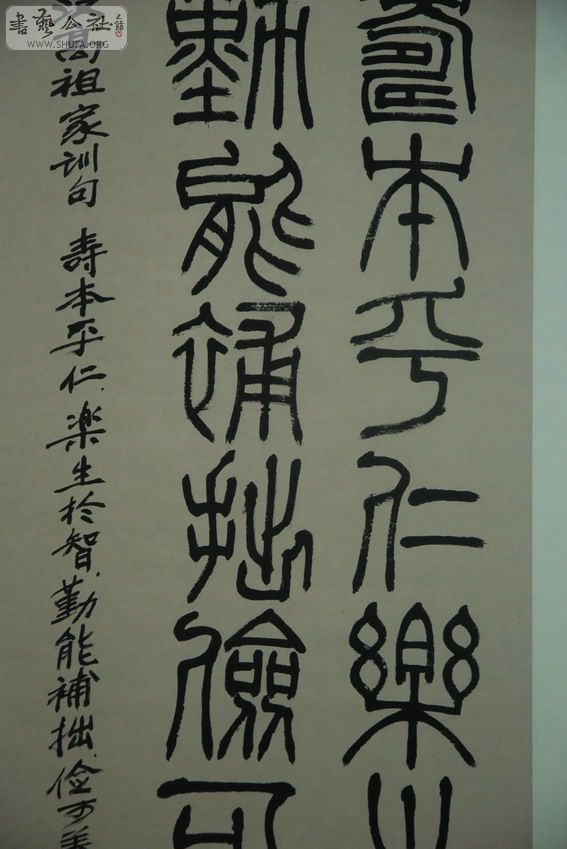 書藝公社
WWW.SHUFA.ORG
壽本乎仁樂
勤能補拙儉可
高祖家训句 寿本乎仁楽生於智勤能補拙俭可養